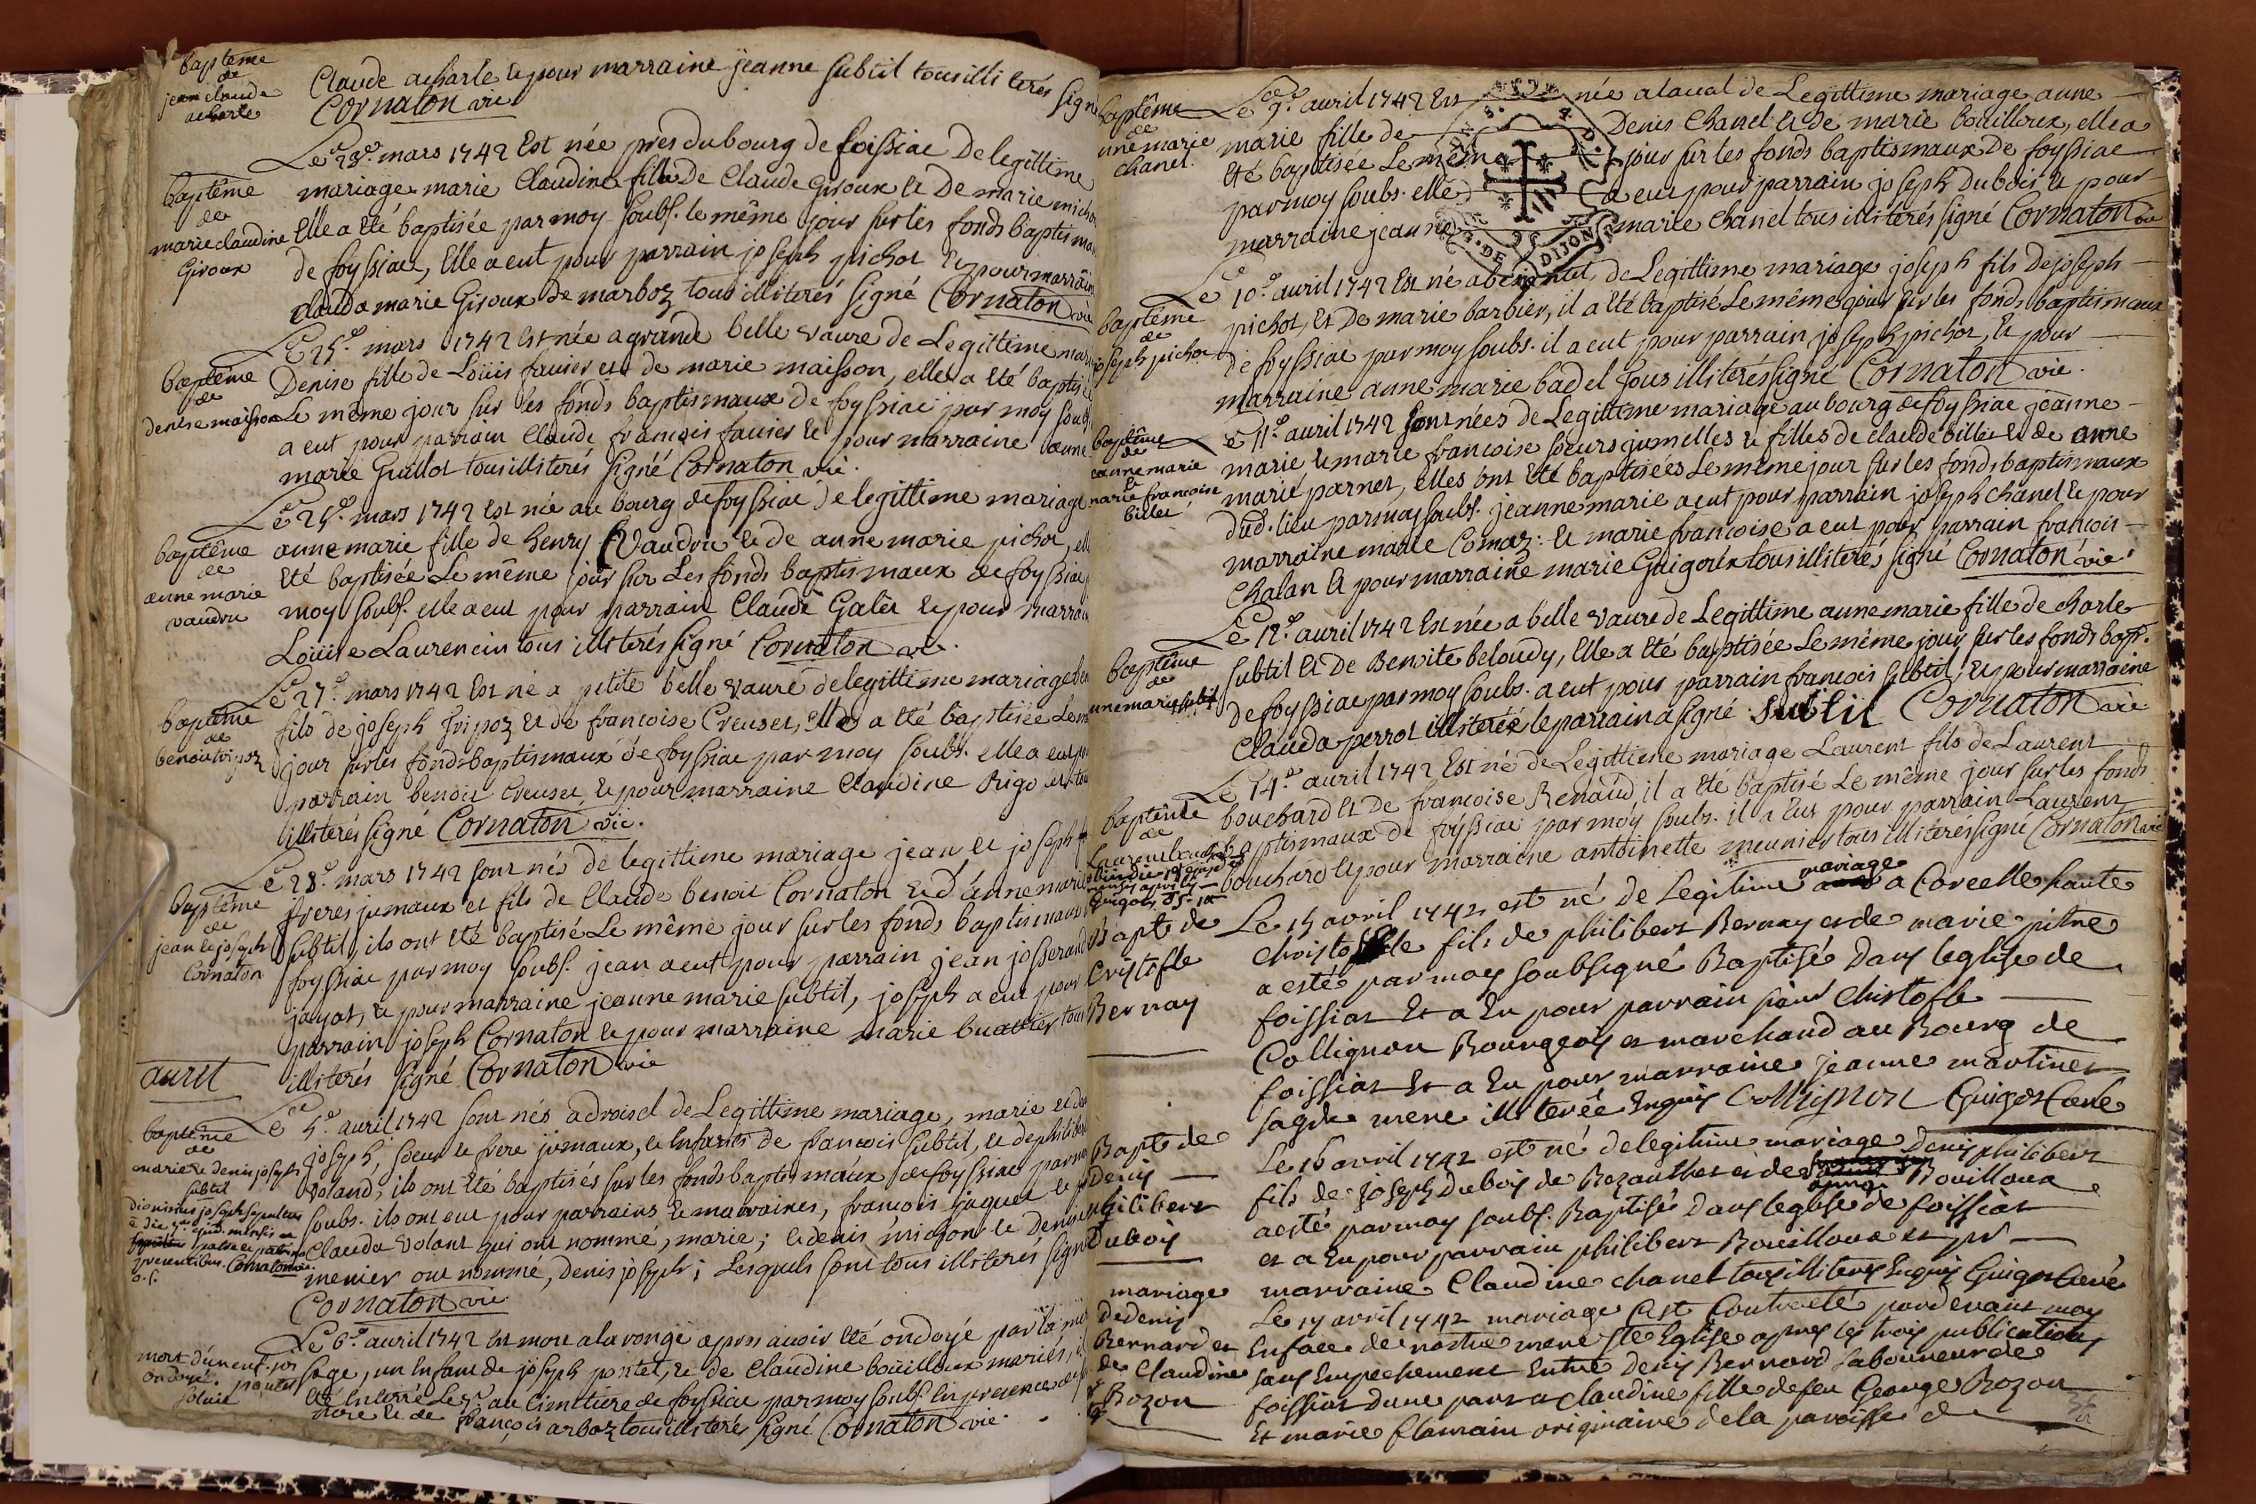 baptême
de
jean claude
acharle
Claude acharle et pour marraine jeanne subtil tous illiterés signé
Cornaton vic
baptême
de
marie claudine
Giroux
Le 23e. mars 1742 Est née pres du bourg de foissiac De legittime
mariage marie Claudine fille De Claude Giroux et De marie
Elle a Eté baptisée par moy soubs. le même jour sur les fonds
de foyssiac, Elle a eut pour parrain joseph pichot et pour marraine
clauda marie Giroux de marboz tous illiterés signé Cornaton vic
baptême
de
denise maisson
Le 25e. mars 1742 Est née a grand belle vavre de Legittime
Denise fille de Loüis favier et de marie maisson, elle a Eté baptisée
Le même jour sur les fonds baptismaux de foyssiac par moy soubs
a eut pour parrain Claude françois favier et pour marraine anne
marie Guillot tous illiterés signé Cornaton vic.
baptême
de
anne marie
vaudru
Le 25e. mars 1742 Est née au bourg de foyssiac De legittime mariage
anne marie fille de henry Vaudru et de anne marie pichot, elle
Eté baptisée Le même jour sur Les fonds baptismaux de foyssiac
moy soubs. elle a eut pour parrain Claude Galet et pour
Loüise Laurencin tous illiterés signé Cornaton vic.
baptême
de
benoit tripoz
Le 27e. mars 1742 Est né a petite belle vavre de legittime mariage
fils de joseph Tripoz et de francoise Creuset, Elle a Eté baptisée Le
jour sur les fonds baptismaux de foyssiac par moy soubs. elle a eut
parrain benoit Creuset, et pour marraine Claudine Rigo
illiterés signé Cornaton vic.
baptême
de
jean et joseph
Cornaton
Le 28e. mars 1742 sont nés de legittime mariage jean et joseph
freres jumaux et fils de Claude benoit Cornaton et d'anne marie
subtil, ils ont Eté baptisé Le même jour sur les fonds baptismaux
foyssiac par moy soubs. jean a eut pour parrain jean josserand
jayat, et pour marraine jeanne marie subtil, joseph a eut pour
parrain joseph Cornaton et pour marraine marie buattier tous
illiterés signé Cornaton vic
avril
baptême
de
marie et denis joseph
subtil
dionisius joseph sepultus
Le 5e. avril 1742 sont nés a droisel de Legittime mariage, marie et
joseph, soeur et frere jumaux, et Enfants de francois subtil, et de
voland, ils ont Eté baptisés sur les fonds baptismaux de foyssiac
soubs. ils ont eut pour parrains et marraines, francois jaquet et
Clauda volant qui ont nommé, marie; et denis mignon et Denise
menier ont nommé, Denis joseph; Lesquels sont tous illiterés signé
Cornaton vic
mort d'un enf.
ondoyé
Le 6e. avril 1742 Est mort a la ronge apres avoir Eté ondoyé par la
sage, un Enfant de joseph pontet, et de Claudine bouilloux mariés,
Eté Enterré Le au Cimetiere de foyssiac par moy soubs. En presence
et de françois arboz tous illiterés signé Cornaton vic.
baptême
de
anne marie
chanel.
Le 9e. avril 1742 Est née a laval de Legittime mariage anne
marie fille de Denis Chanel et de marie bouilloux, elle a
Eté baptisée Le même jour sur les fonds baptismaux De foyssiac
par moy soubs. elle a eut pour parrain joseph Dubois, et pour
marraine jeanne marie Chanel tous illiterés signé Cornaton vic
G. DE DIJON
baptême
de
joseph pichot
Le 10e. avril 1742 Est né a de Legittime mariage joseph fils De joseph
pichot, et De marie barbier, il a Eté baptisé Le même jour sur les fonds baptismaux
de foyssiac par moy soubs. il a eut pour parrain joseph pichot, et pour
marraine anne marie badel tous illiterés signé Cornaton vic.
baptême
de
jeanne marie
et
marie francoise
billet
Le 11e. avril 1742 sont nées de Legittime mariage au bourg de foyssiac jeanne
marie et marie francoise soeurs jumelles et filles de claude billet et de anne
marie parnet, elles ont Eté baptisées Le même jour sur les fonds baptismaux
dud. lieu par moy soubs. jeanne marie a eut pour parrain joseph chanel et pour
marraine marie Comaz: et marie francoise a eut pour parrain francois
Chalan et pour marraine marie Guigoret tous illiterés signé Cornaton vic.
baptême
de
anne marie subtil
Le 12e. avril 1742 Est née a belle vavre de Legittime anne marie fille de charle
subtil et De Benoite beloudy, Elle a Eté baptisée Le même jour sur les fonds bapt.
de foyssiac par moy soubs. a eut pour parrain francois subtil, et pour marraine
Clauda perrot illiterée le parrain a signé subtil Cornaton vic
baptême
de
Laurent bouchard
Le 14e. avril 1742 Est né de Legittime mariage Laurent fils de Laurent
bouchard et De francoise Renaud, il a Eté baptisé Le même jour sur les fonds
baptismaux de foyssiac par moy soubs. il a Eut pour parrain Laurent
bouchard et pour marraine antoinette meunier tous illiterés signé Cornaton vic
Bapt. de
Cristofle
Bernay
Le 15 avril 1742 est né de Legitime mariage a Corcelle haute
Christofle fils de philibert Bernay et de marie pitre
a esté par moy soubsigné Baptisé Dans leglise de
foissiat Et a Eu pour parrain sieur Christofle
Collignon Bourgeois et marchand au Bourg de
foissiat Et a Eu pour marraine jeanne martinet
sage mere illiterée Enquis Collignon Guigot Curé
Bapt. de
Denis
philibert
Dubois
Le 16 avril 1742 est né de legitime mariage Denis philibert
fils de Joseph Dubois de et de Bouilloux
a esté par moy soubs. Baptisé Dans leglise de foissiat
et a Eu pour parrain philibert Bouilloux et pr
marraine Claudine chanel tous illiterés Enquis Guigot Curé
mariage
De denis
Bernard et
de Claudine
Bozon
Le 17 avril 1742 mariage a Esté Contracté pardevant moy
En face de nostre mere Ste Eglise apres les trois publications
sans Empechement Entre Denis Bernard laboureur de
foissiat dune part a Claudine fille de feu George Bozon
Et marie flamain originaire de la paroisse de